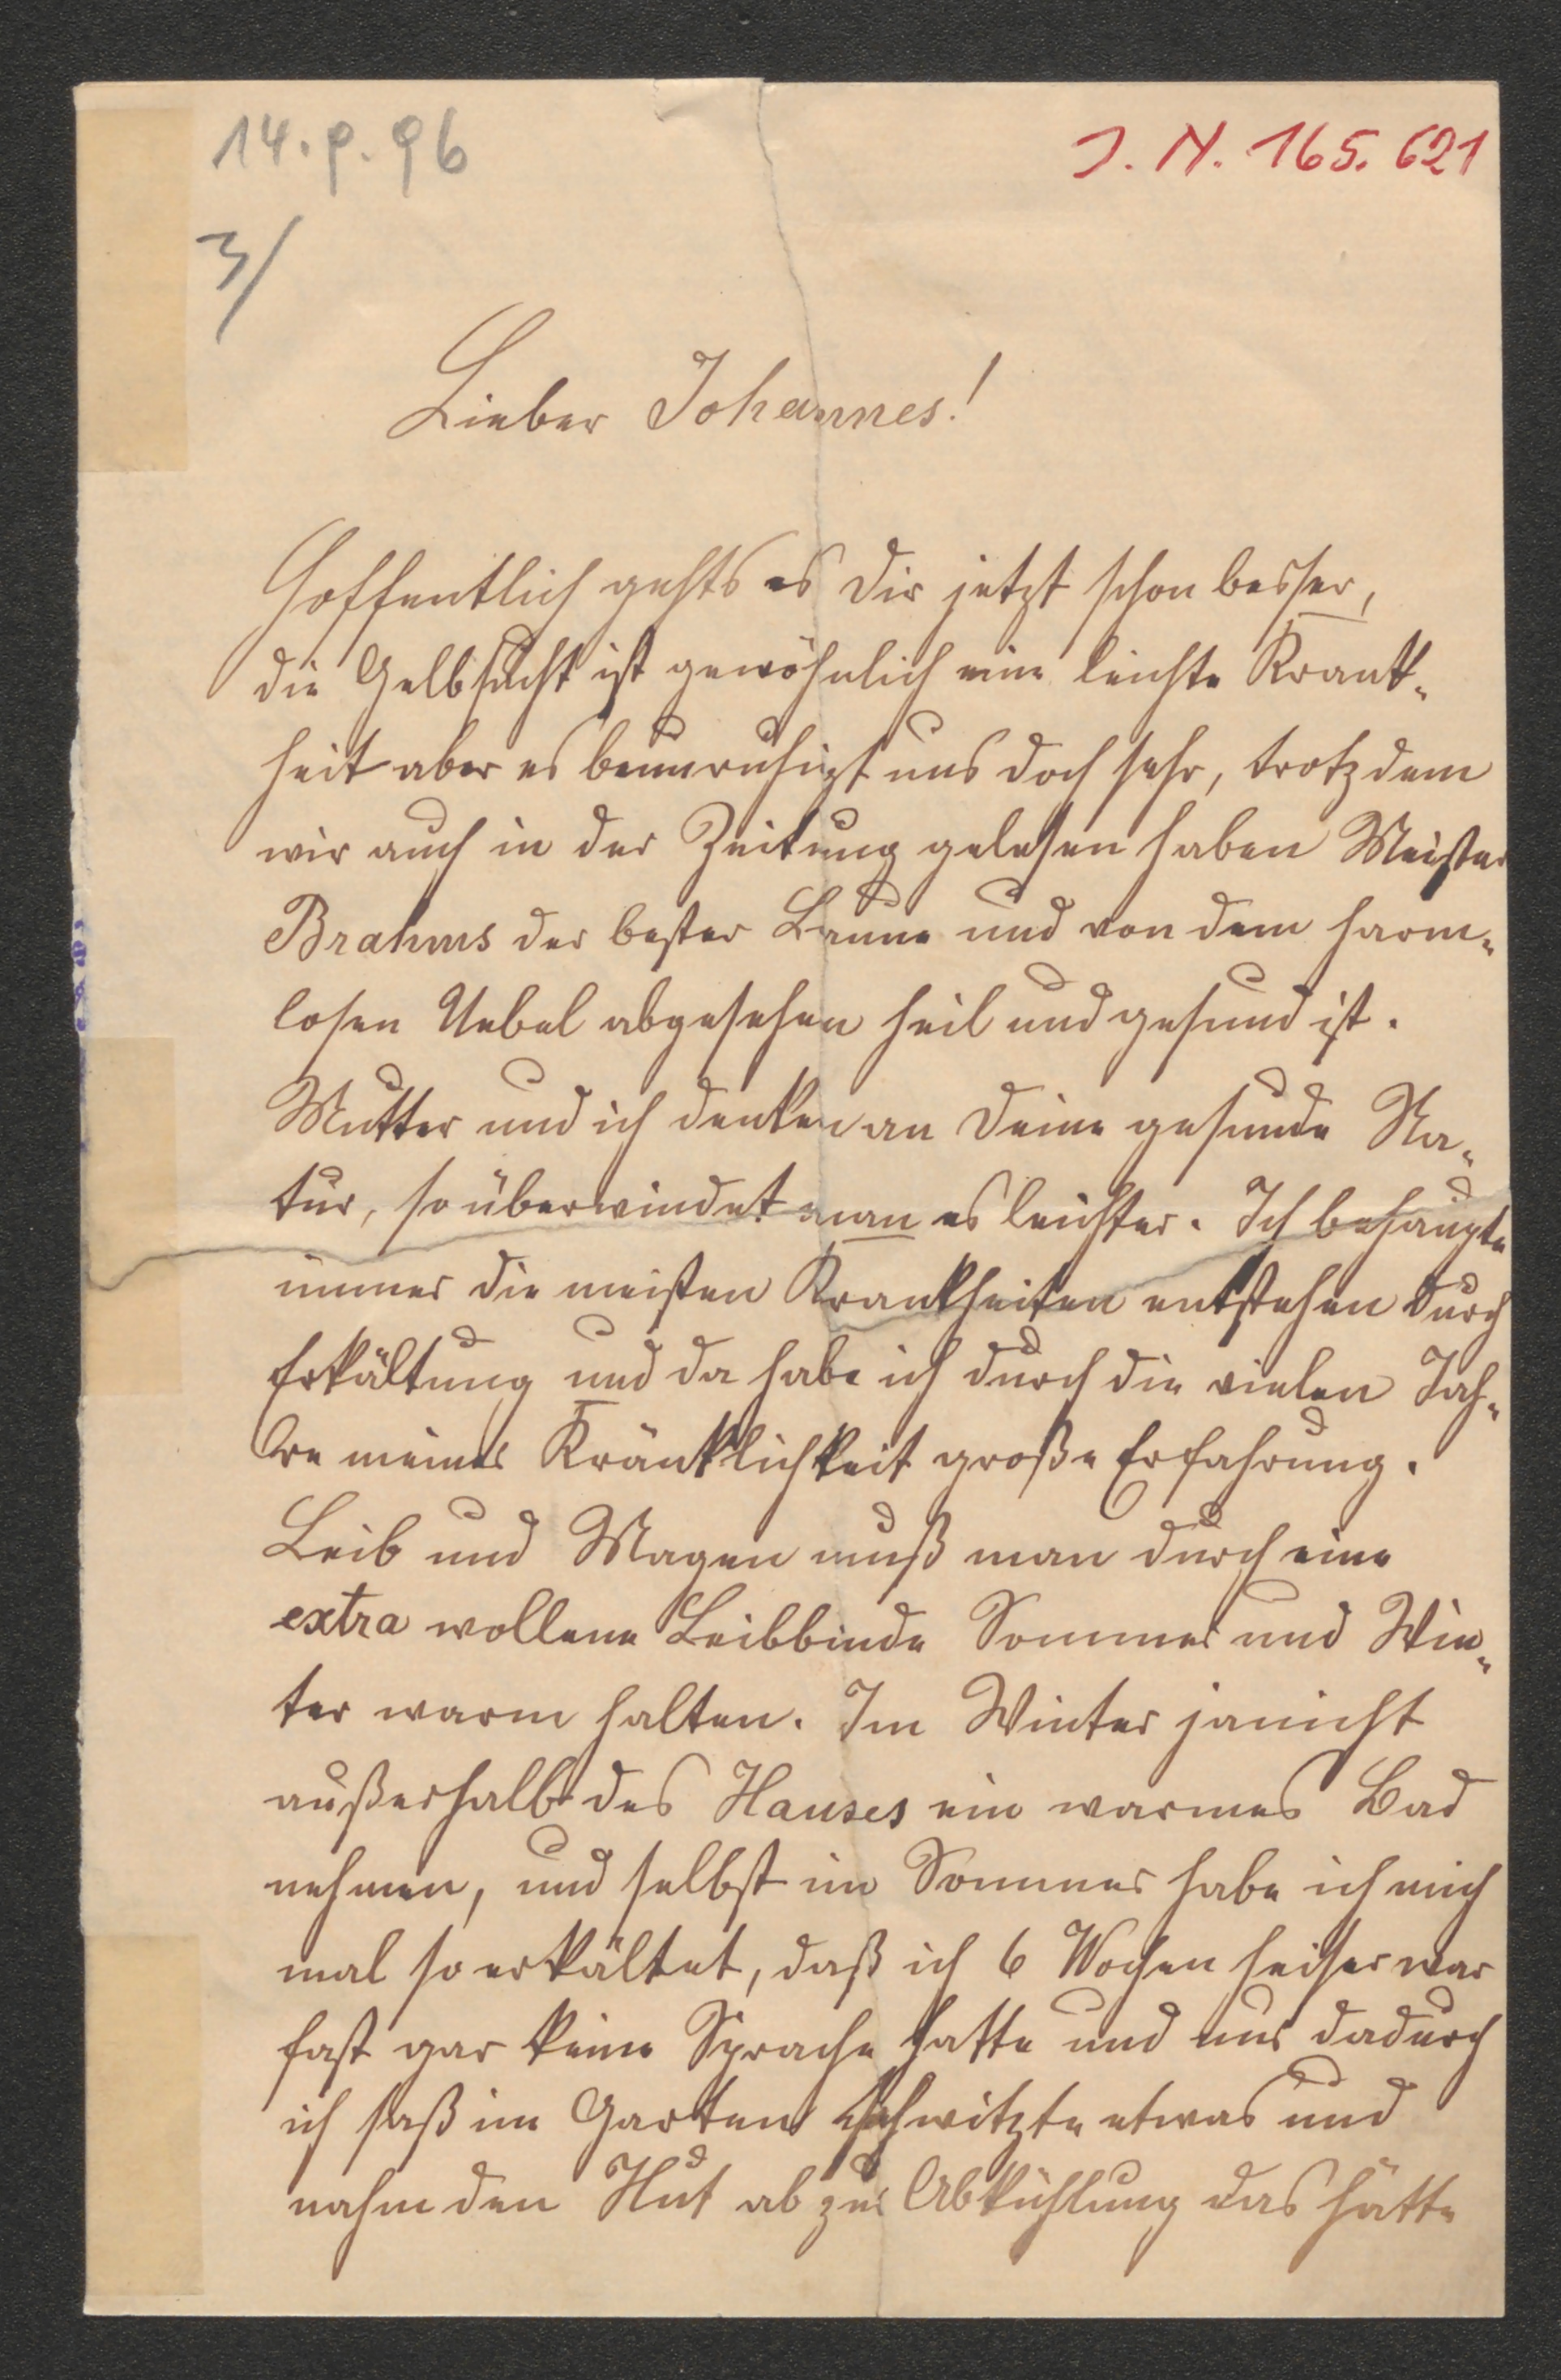 14.9.96
J. N. 165.621
3/
Lieber Johannes!
Hoffentlich gehts es Dir jetzt schon besser,
die Gelbsucht ist gewöhnlich eine leichte Krank-
heit aber es beunruhigt uns doch sehr, trotzdem
wir auch in der Zeitung gelesen haben Meister
Brahms der bester Laune und von dem harm-
losen Uebel abgesehen heil und gesund ist.
Mutter und ich denken an Deine gesunde Na-
tur, so überwindet man es leichter. Ich behaupte
immer die meisten Krankheiten entstehen durch
Erkältung und da habe ich durch die vielen Jah-
re meiner Kränklichkeit große Erfahrung.
Leib und Magen muß man durch eine
extra wollene Leibbinde Sommer und Win-
ter warm halten. Im Winter ja nicht
außerhalb des Hauses ein warmes Bad
nehmen, und selbst im Sommer habe ich mich
mal so erkältet, daß ich 6 Wochen heiser war
fast gar keine Sprache hatte und nur dadurch
ich saß im Garten schwitzte etwas und
nahm den Hut ab zur Abkühlung das hätte